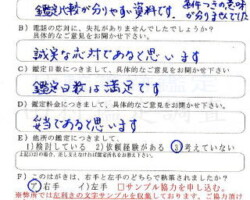 鑑定比較が分りやすい資料です。
条件つきの意味
が分りませでした
B) 電話の応対に、失礼がありませんでしたでしょうか?
具体的なご意見をお聞かせ下さい。
誠実な応対であると思います
C) 鑑定日数につきまして、具体的なご意見をお聞かせ下さい
鑑定日数は満足です
D) 鑑定料金につきまして、具体的なご意見をお聞かせ下さい。
妥当であると思います
E) 他所の鑑定につきまして
1)検討している 2)依頼経験がある ③考えていない
上記2)の場合、差し支えなければ、具体的なご意見をお聞かせ下さい。
F) このはがきは、右手と左手のどちらで執筆されましたか?
ア)右手 イ)左手 □サンプル協力を申し込む。
※弊所では左利きの文字サンプルを収集しております。ご協力頂け